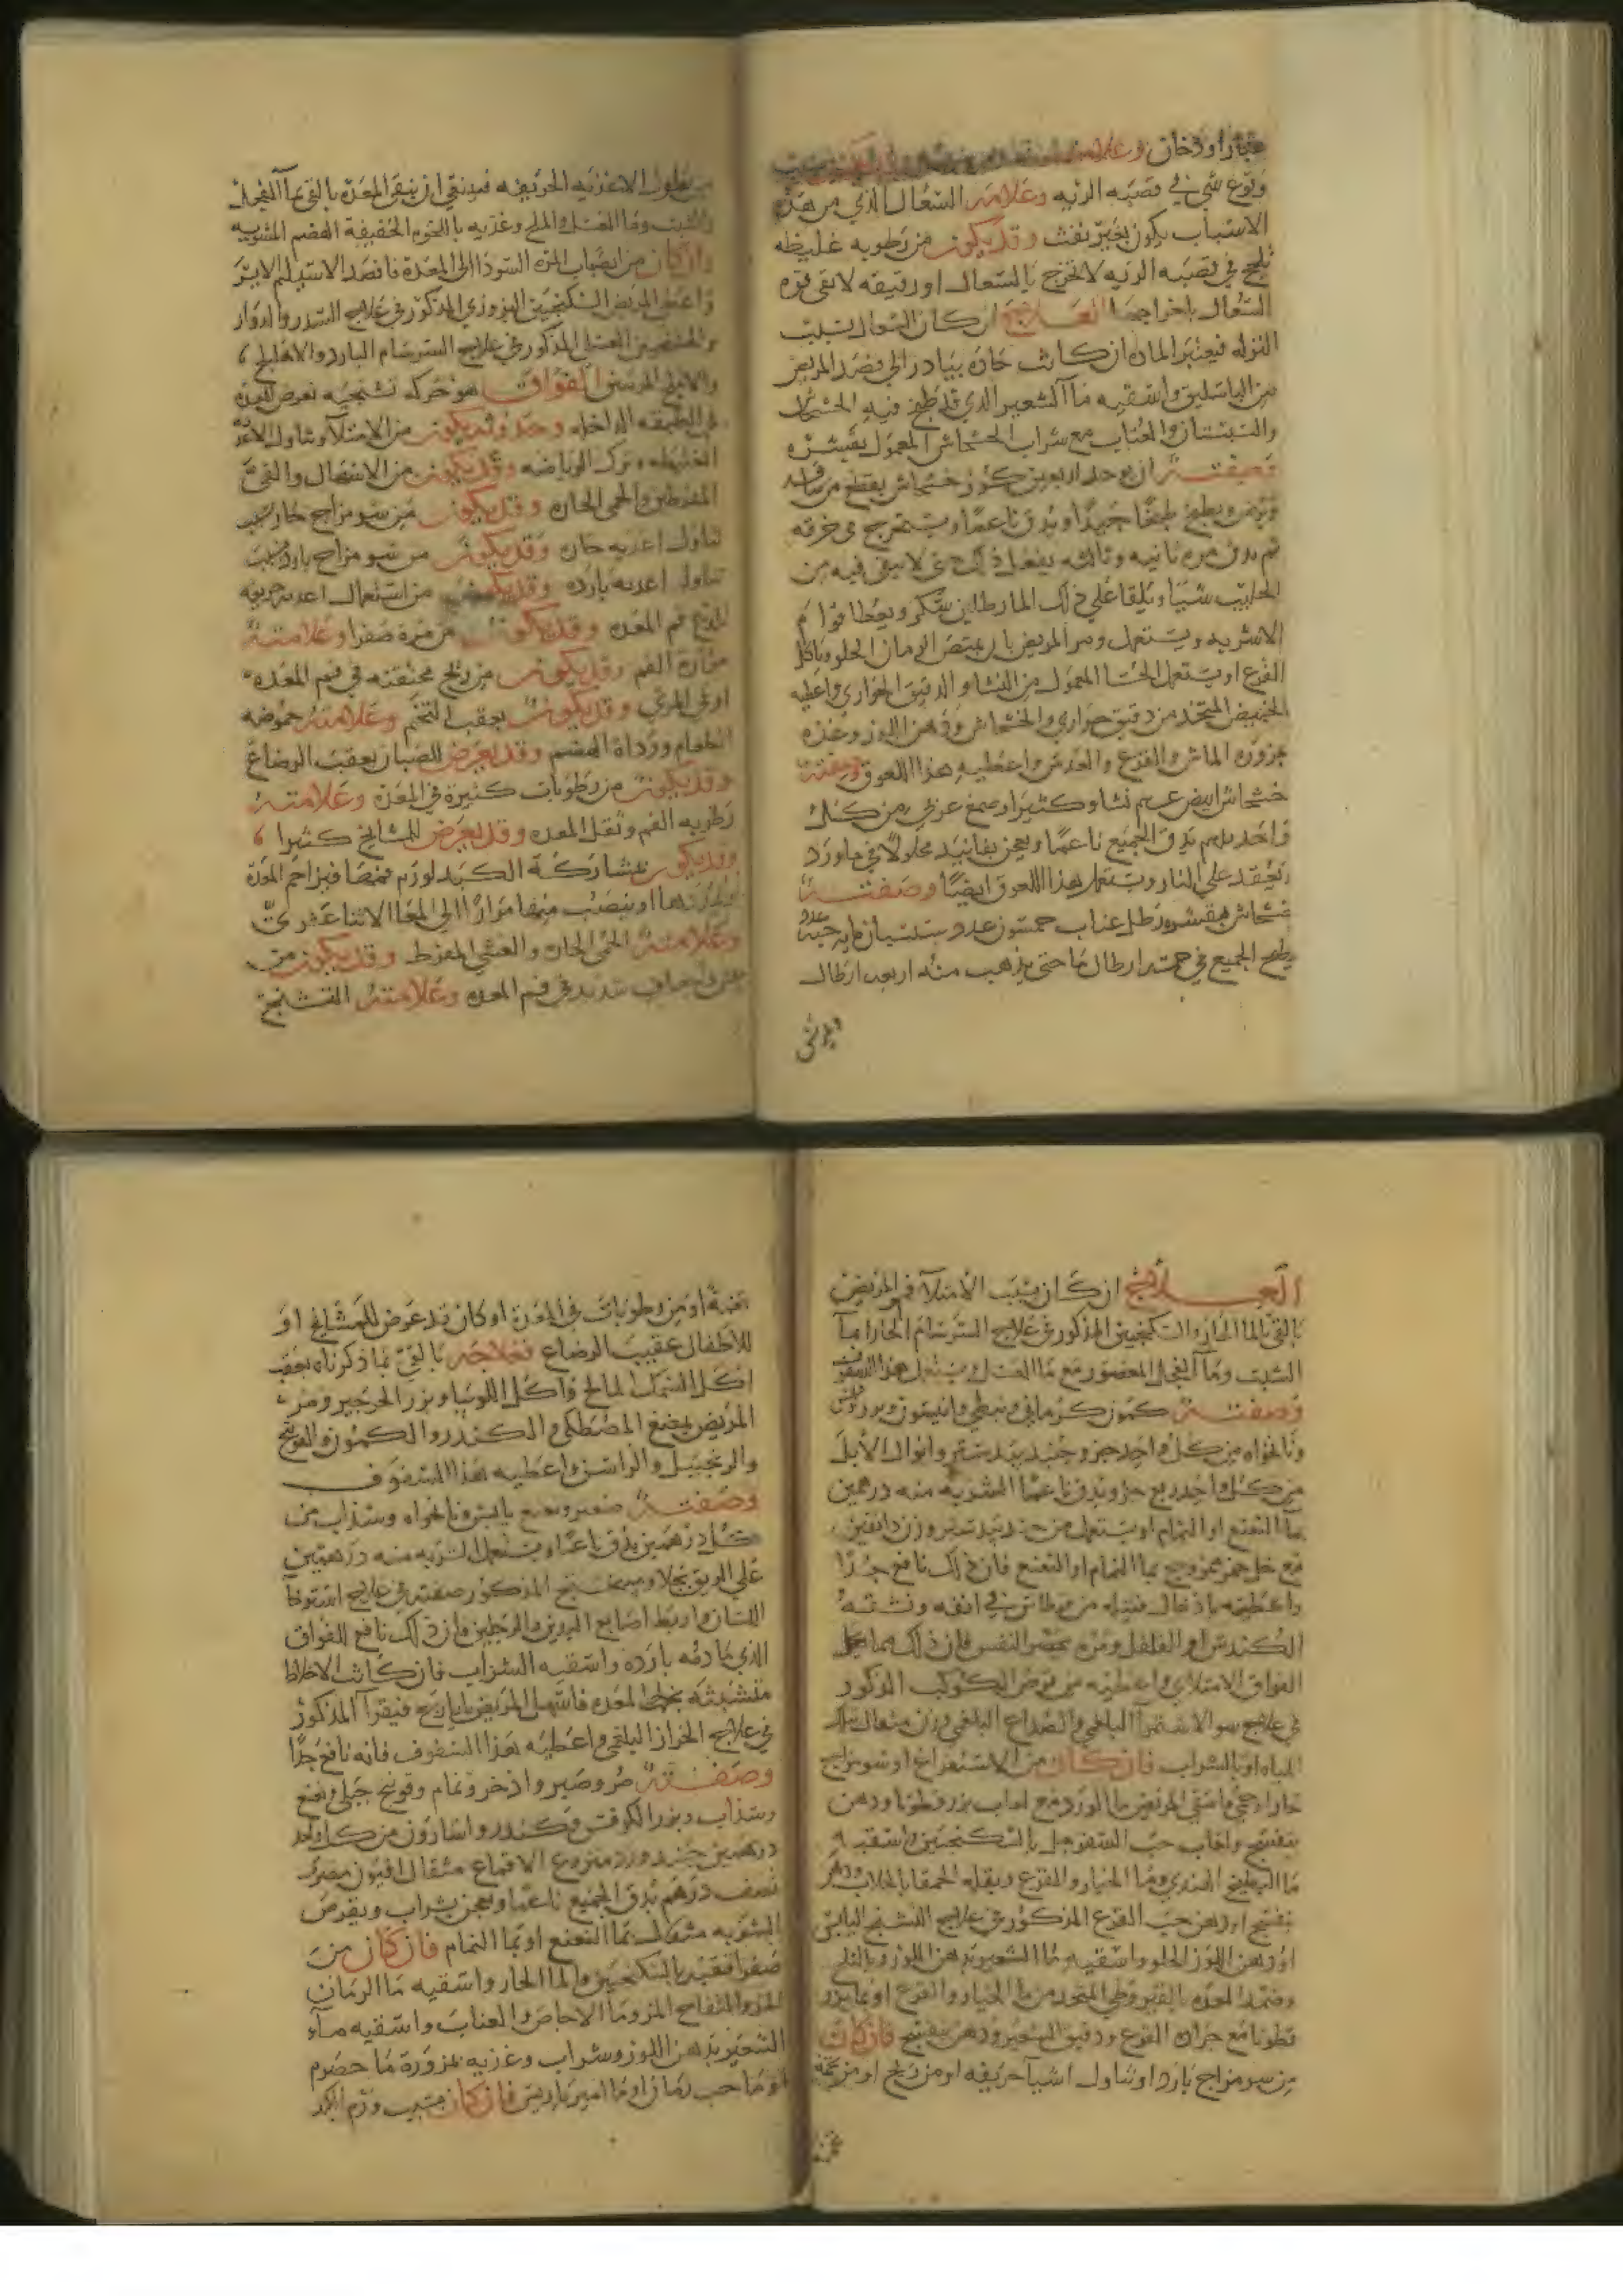 غبار او دخان وعلامته
وقوع شي في قصبه الريه وعلامه السعال الذي من هذه
الاسباب يكون بغير نفث وقد يكون من رطوبه غليظه
تلحج في قصبه الريه لا تخرج بالسعال او رقيقه لا تقى قوه
السعال باخراجها العلاج ان كان السعال بسبب
النزله فيعتبر الماده ان كانت حاده يبادر الى فصد المريض
من الباسليق واسقيه ماآ الشعير الذي قد طبخ فيه الخشخاش
والسبستان والعناب مع شراب الخشخاش المعمول بقشره
وصفته ان يوخذ اربعين كوز خشخاش يقطع من
ويرض ويطبخ طبخا جيدا ويدق ناعما ويستخرج في خرقه
ثم يدق مره ثانيه وثالثه يفعل ذلك حتى لا يبقى فيه من
الحليب شيا ويلقا على ذلك الما رطلين سكر ويعطا قوام
الاشربه ويستعمل ومر المريض بان يمتص الرمان الحلو وياكل
القرع او يستعمل الحسا المعمول من النشا والدقيق الحواري واعطيه
الخبيص المتخذ من دقيق حواري والخشخاش ودهن اللوز وغذه
بمزوره الماش والقرع والعدس واعطيه هذا اللعوق وصفته
خشخاش ابيض نشا وكثيرا وصمغ عربي من كل
واحد يدق الجميع ناعما ويعجن بفانيد محلولا في ماورد
ويعقد على النار ويستعمل هذا اللعوق ايضا وصفته
خشخاش بقشره رطل عناب خمسون عدد سبستان مايه حبه عدد
يطبخ الجميع في خمسه ارطال ما حتى يذهب منه اربعه ارطال
من تناول الاغذيه الحريفه فينبغي ان ينقى المعده بالقي بماآ الفجل
والشبت وما العسل والملح وغذيه باللحوم الخفيفة الهضم المشويه
وان كان من انصباب المره السودا الى المعده فافصد الاسيلم الايسر
واعط المريض السكنجبين البزوري المذكور في علاج السدر والدوار
المذكور في علاج السرسام البارد والاهليلج
والاملج المربيين الفواق هو حركه تشنجيه تعرض للمعده
في الطبقه الداخله وحدوثه يكون من الامتلآ وتناول الاغذ
الغليظه وترك الرياضه وقد يكون من الاسهال والقيء
المفرطين والحمى الحاده وقد يكون من سو مزاج حار بسبب
تناول اغذيه حاره وقد يكون من سو مزاج بارد بسبب
تناول اغذيه بارده وقد يكون من استعمال اغذيه حريفه
تلذع فم المعده وقد يكون من مرة صفرا وعلامته
مرارة الفم وقد يكون من ريح محتقنه في فم المعده
او في المري وقد يكون بعقب التخم وعلامته حموضه
الطعام ورداة الهضم وقد يعرض للصبيان بعقب الرضاع
وقد يكون من رطوبات كثيرة في المعده وعلامته
رطوبه الفم وثقل المعده وقد يعرض للمشايخ كثيرا
وقد يكون بمشاركة الكبد لورم فيزاحم المعدة
او ينصب منها مرارا الى المعا الاثنا عشري
وعلامته الحمى الحاده والغشي المفرط وقد يكون من
شديد في فم المعده وعلامته التشنج
العلاج ان كان بسبب الامتلآ فمر المريض
بالقي بالما الحار والسكنجبين المذكور في علاج السرسام الحار او مآ
الشبت وماآ الفجل المعصور مع ما العسل ويستعمل هذا السفوف
وصفته كمون كرماني ونبطي وانيسون وبزر كرفس
ونانخواه من كل واحد جز وجندبيدستر وابوال الابل
من كل واحد ربع جز ويدق ناعما الشربه منه درهمين
بمآ النعنع او النمام او يستعمل من جندبيدستر وزن دانقين
مع خل خمر ممزوج بما النمام او النعنع فان ذلك نافع جدا
واعطيه بادخال فتيله من قرطاس في انفه ونشقه
الكندس او الفلفل ومره بحصر النفس فان ذلك مما يحلل
الفواق الامتلاي واعطيه من قرص الكوكب المذكور
في علاج سو الاستمرآ البلغمي والصداع البلغمي وزن مثقال
المياه او بالشراب فان كان من الاستفراغ او سو مزاج
حار او حمى فاسقي المريض ما الورد مع لعاب بزر قطونا ودهن
بنفسج ولعاب حب السفرجل بالسكنجبين واسقيه
ما البطيخ الهندي وما الخيار والقرع وبقله الحمقا بالجلاب ودهن
بنفسج او دهن حب القرع المذكور في علاج التشنج اليابس
او دهن اللوز الحلو واسقيه ما الشعير بدهن اللوز وبالثلج
وضمد المعده بالقيروطي المتخذ من ما الخيار والقرع او بما بزر
قطونا مع جراده القرع ودقيق الشعير ودهن بنفسج فان كان
من سو مزاج بارد او تناول اشيآ حريفه او من ريح او من تخمه
تخمة او من رطوبات في المعدة او كان قد عرض للمشايخ او
للاطفال عقيب الرضاع فعلاجه بالقيء بما ذكرناه بعقب
اكل السمك المالح واكل اللوبيا وبزر الجرجير ومر
المريض بمضغ المصطكى والكندر والكمون والفوتنج
والزنجبيل والراسن واعطيه هذا السفوف
وصفته صعتر ونعنع يابس ونانخواه وسذاب من
كل درهمين يدق ناعما ويستعمل الشربه منه درهمين
على الريق بجلاب المذكور صفته في علاج استرخا
اللسان واربط اصابع اليدين والرجلين فان ذلك نافع الفواق
الذي مادته بارده واسقيه الشراب فان كانت الاخلاط
متشبثه بخمل المعده فاسهل المريض بايارج فيقرآ المذكور
في علاج الخزاز البلغمي واعطيه هذا السفوف فانه نافع جدا
وصفته مر وصبر واذخر ونمام وفوتنج جبلي ونعنع
وسذاب وبزر الكرفس وكندر واسارون من كل واحد
درهمين ورد منزوع الاقماع مثقال افيون مصري
نصف درهم يدق الجميع ناعما ويعجن بشراب ويقرص
الشربه مثقال بمآ النعنع او بمآ النمام فان كان من
صفرا فقيه بالسكنجبين والما الحار واسقيه ما الرمان
المز والتفاح المز وما الاجاص والعناب واسقيه مآء
الشعير بدهن اللوز وشراب وغذيه بمزورة ما حصرم
او ما حب رمان او ما امبرباريس فان كان بسبب ورم الكبد